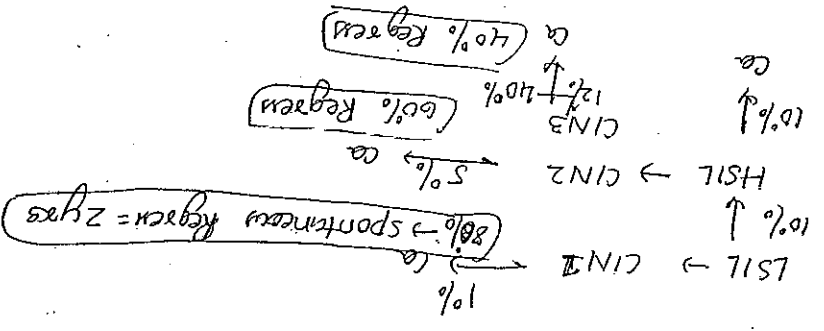 1%
LSIL → CIN1 → Ca
80% → spontaneous Regress = 2yrs
10% ↓
HSIL → CIN2 → 5% Ca
60% Regress
10% ↓ CIN3
12% 40%
Ca Ca
40% Regress